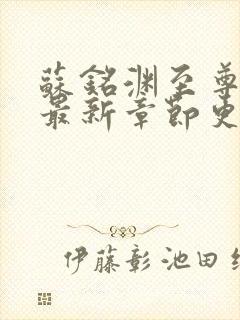 蘇銘渊至尊
最新章節史
伊藤彰池田